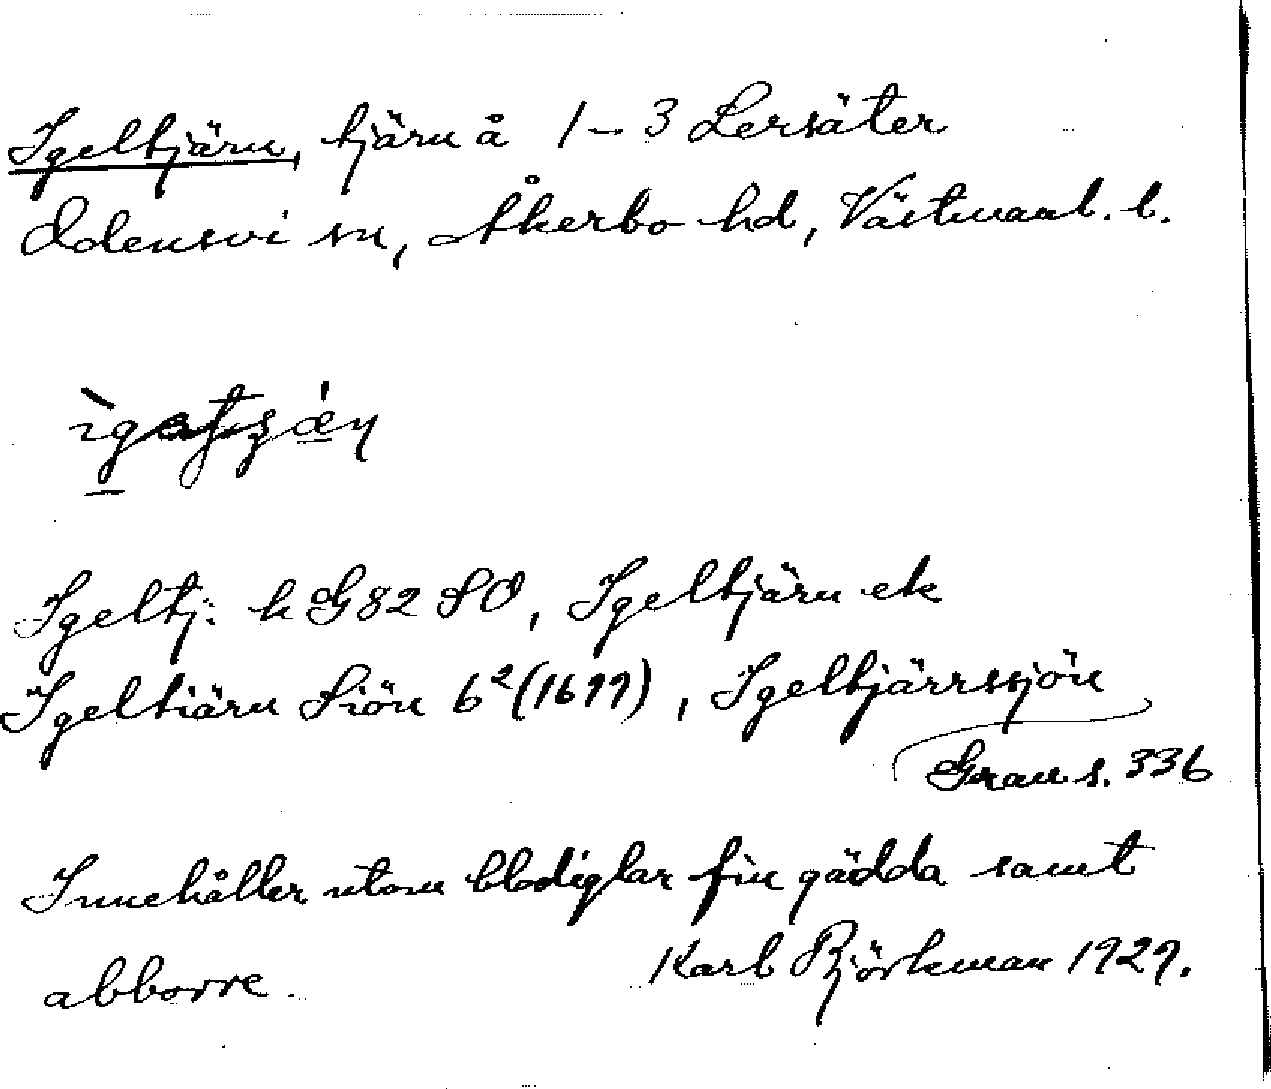 Igeltjärn, tjärn å 1-3 Lersäter
Odensvi sn, Åkerbo hd, Västmanl. l.
Igeltj: k G82 SO, Igeltjärn ek
Igeltiärn Siön 6²(1699), Igeltjärrssjön
Grau s. 336
Innehåller utom blodiglar fin gädda samt
abborre. Karl Björkman 1929.